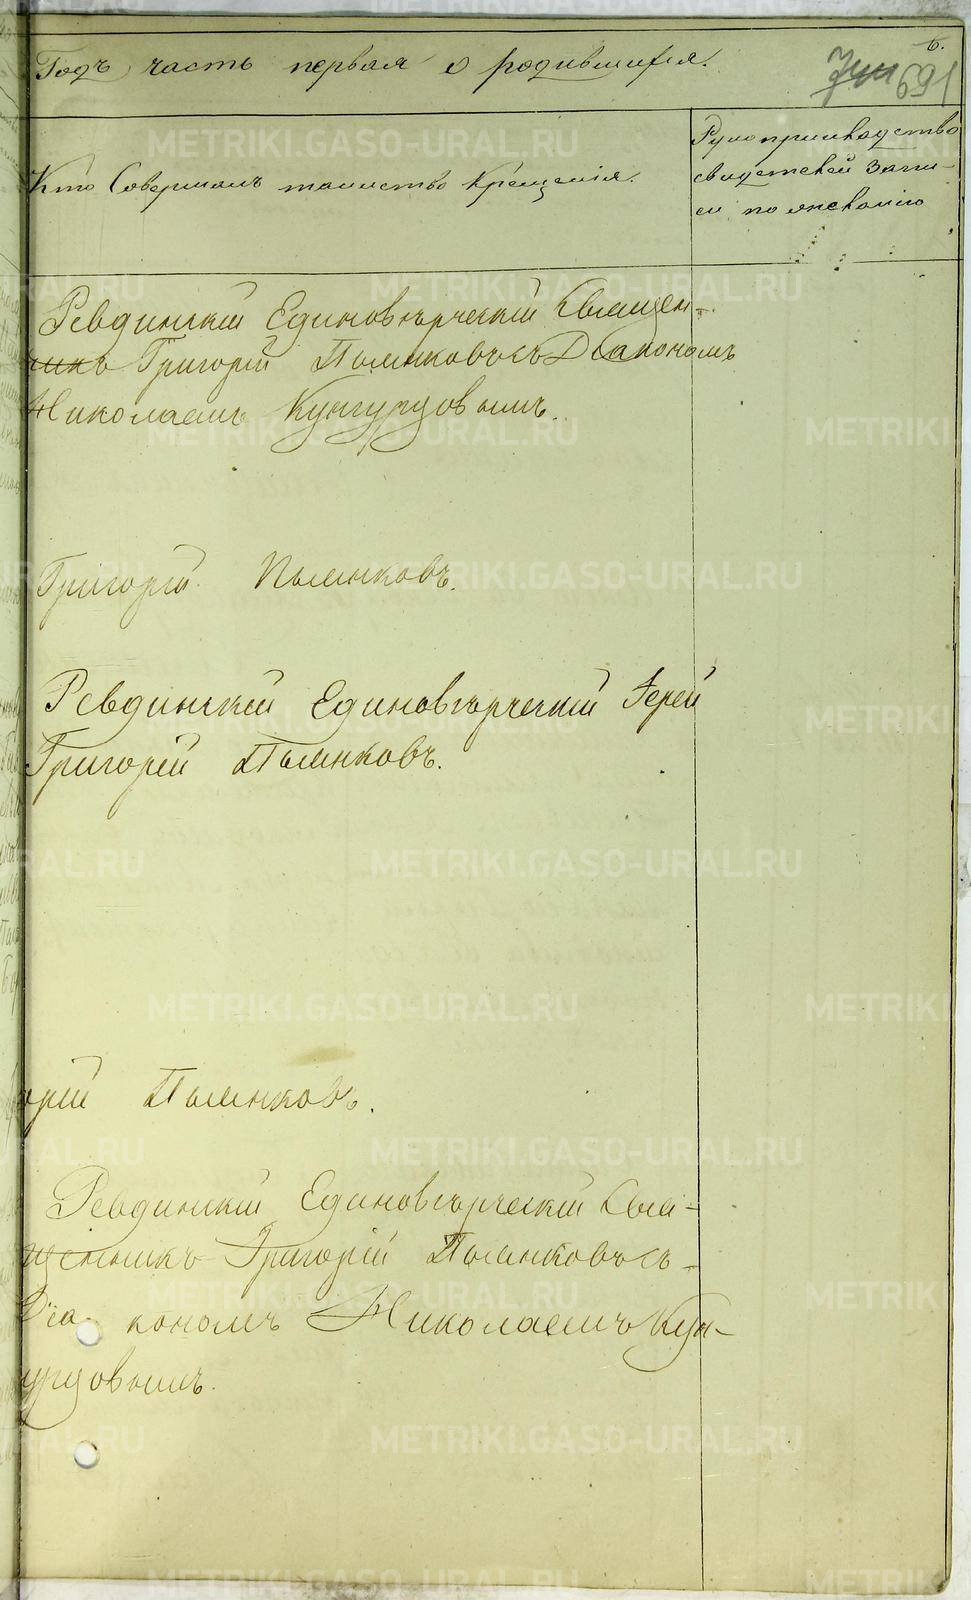 6.
Годъ, часть первая о родившихся.
691
Кто Совершалъ таинство Крещенія.
Рукоприкладство
свидетелей запи-
си по желанію
Ревдинскій Единоверческій Священ-
никъ Григорій Пьянковъ съ Діакономъ
Николаемъ Кунгурцовымъ.
Григорій Пьянковъ.
Ревдинскій Единоверческій Іерей
Григорій Пьянковъ.
орій Пьянковъ.
Ревдинскій Единоверческій Свя-
щенникъ Григорій Пьянковъ съ
Діа кономъ Николаемъ Кун-
гурцовымъ.
METRIKI.GASO-URAL.RU